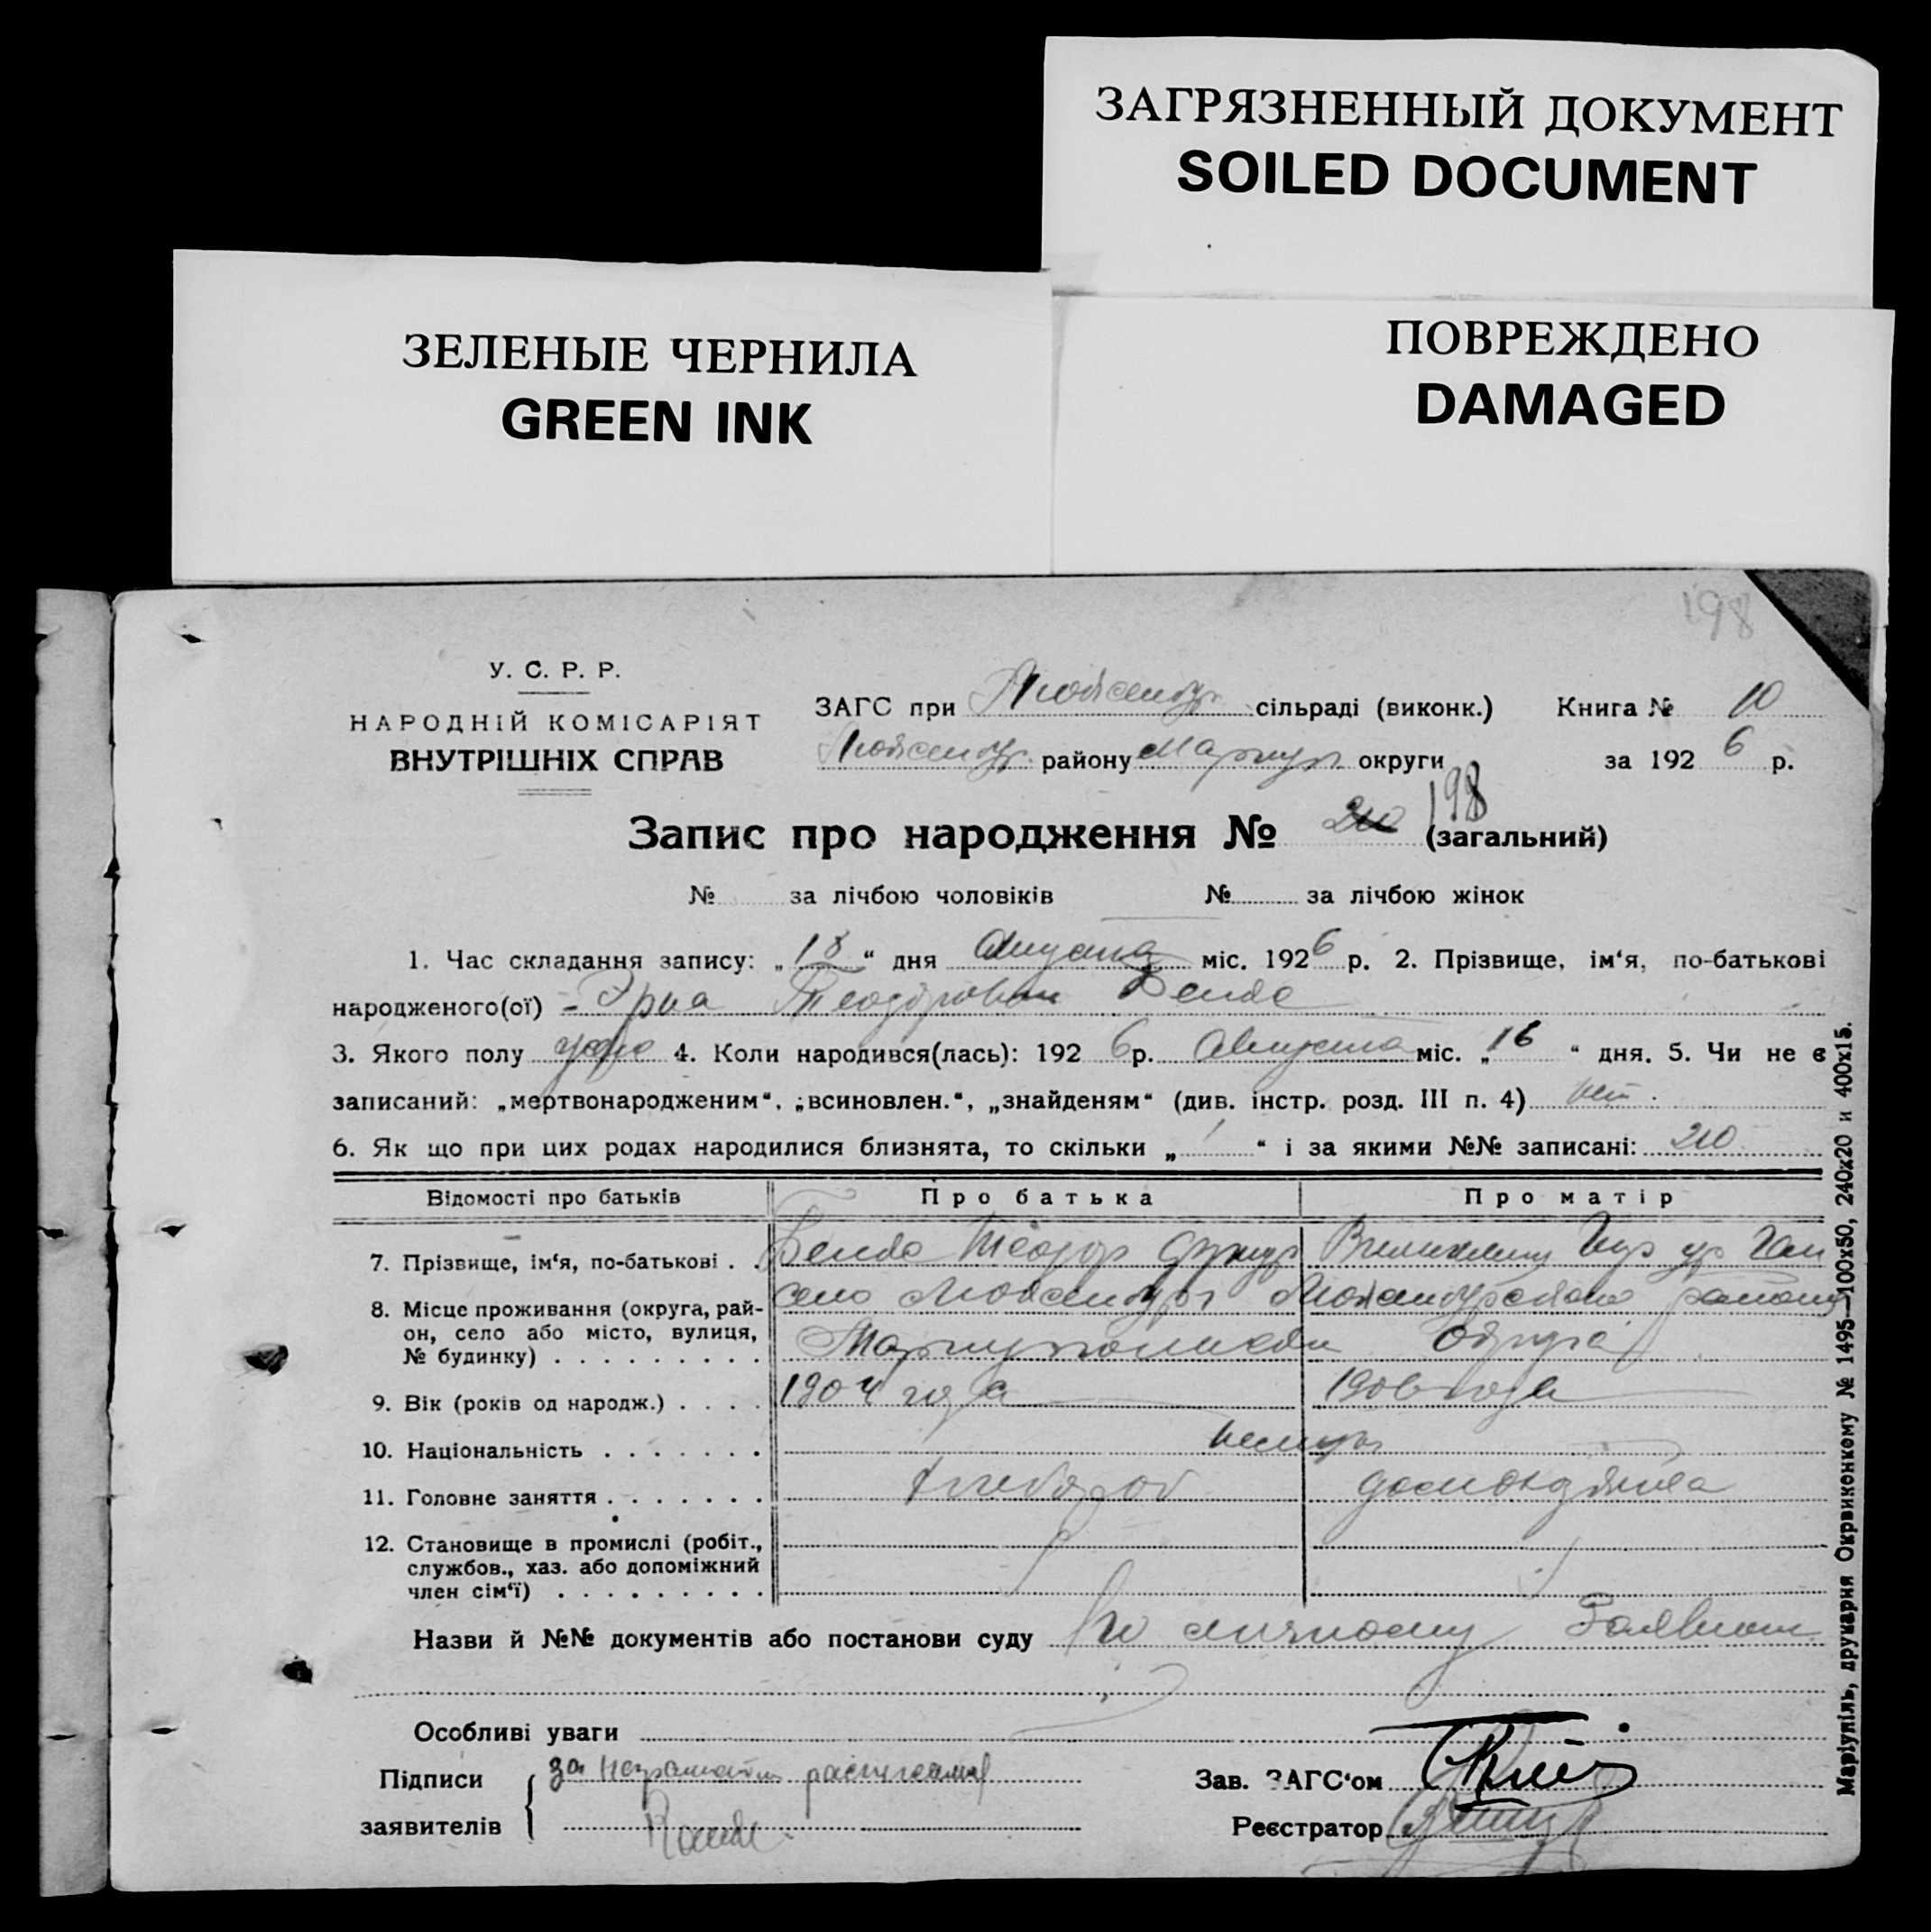 ЗАГРЯЗНЕННЫЙ ДОКУМЕНТ
SOILED DOCUMENT
ЗЕЛЕНЫЕ ЧЕРНИЛА
GREEN INK
ПОВРЕЖДЕНО
DAMAGED
198
У. С. Р. Р.
НАРОДНІЙ КОМІСАРІЯТ
ВНУТРІШНІХ СПРАВ
ЗАГС при Люксембур сільраді (виконк.) Книга № 10
Люксембур. району Мариуп округи за 1926 р.
Запис про народження № 210 198 (загальний)
№ за лічбою чоловіків № за лічбою жінок
1. Час складання запису: „18“ дня Августа міс. 1926 р. 2. Прізвище, ім‘я, по-батькові
народженого(ої) Эрна Теодоровна Бенде
3. Якого полу 4. Коли народився(лась): 1926 р. Августа міс. „16“ дня. 5. Чи не є
записаний: „мертвонародженим“, „всиновлен.“, „знайденям“ (див. інстр. розд. III п. 4) нет.
6. Як що при цих родах народилися близнята, то скільки „ “ і за якими №№ записані: 210
Відомості про батьків Про батька Про матір
7. Прізвище, ім‘я, по-батькові . . Бенде Теодор
8. Місце проживання (округа, рай- село Люксембург Люксембургского району
он, село або місто, вулиця, Мариупольской Округа
№ будинку) . . . . . . . . .
9. Вік (років од народж.) . . . . 1904 года 1906 года
10. Національність . . . . . . . немцы
11. Головне заняття . . . . . . . хлебороб домохозяйка
12. Становище в промислі (робіт.,
службов., хаз. або допоміжний
член сім‘ї) . . . . . . . . .
Назви й №№ документів або постанови суду По личному Заявлен
Особливі уваги
Підписи за неграмотн расписался
заявителів
Зав. ЗАГС‘ом
Реєстратор
Маріупіль, друкарня Окрвиконкому № 1495—100х50, 240х20 и 400х15.